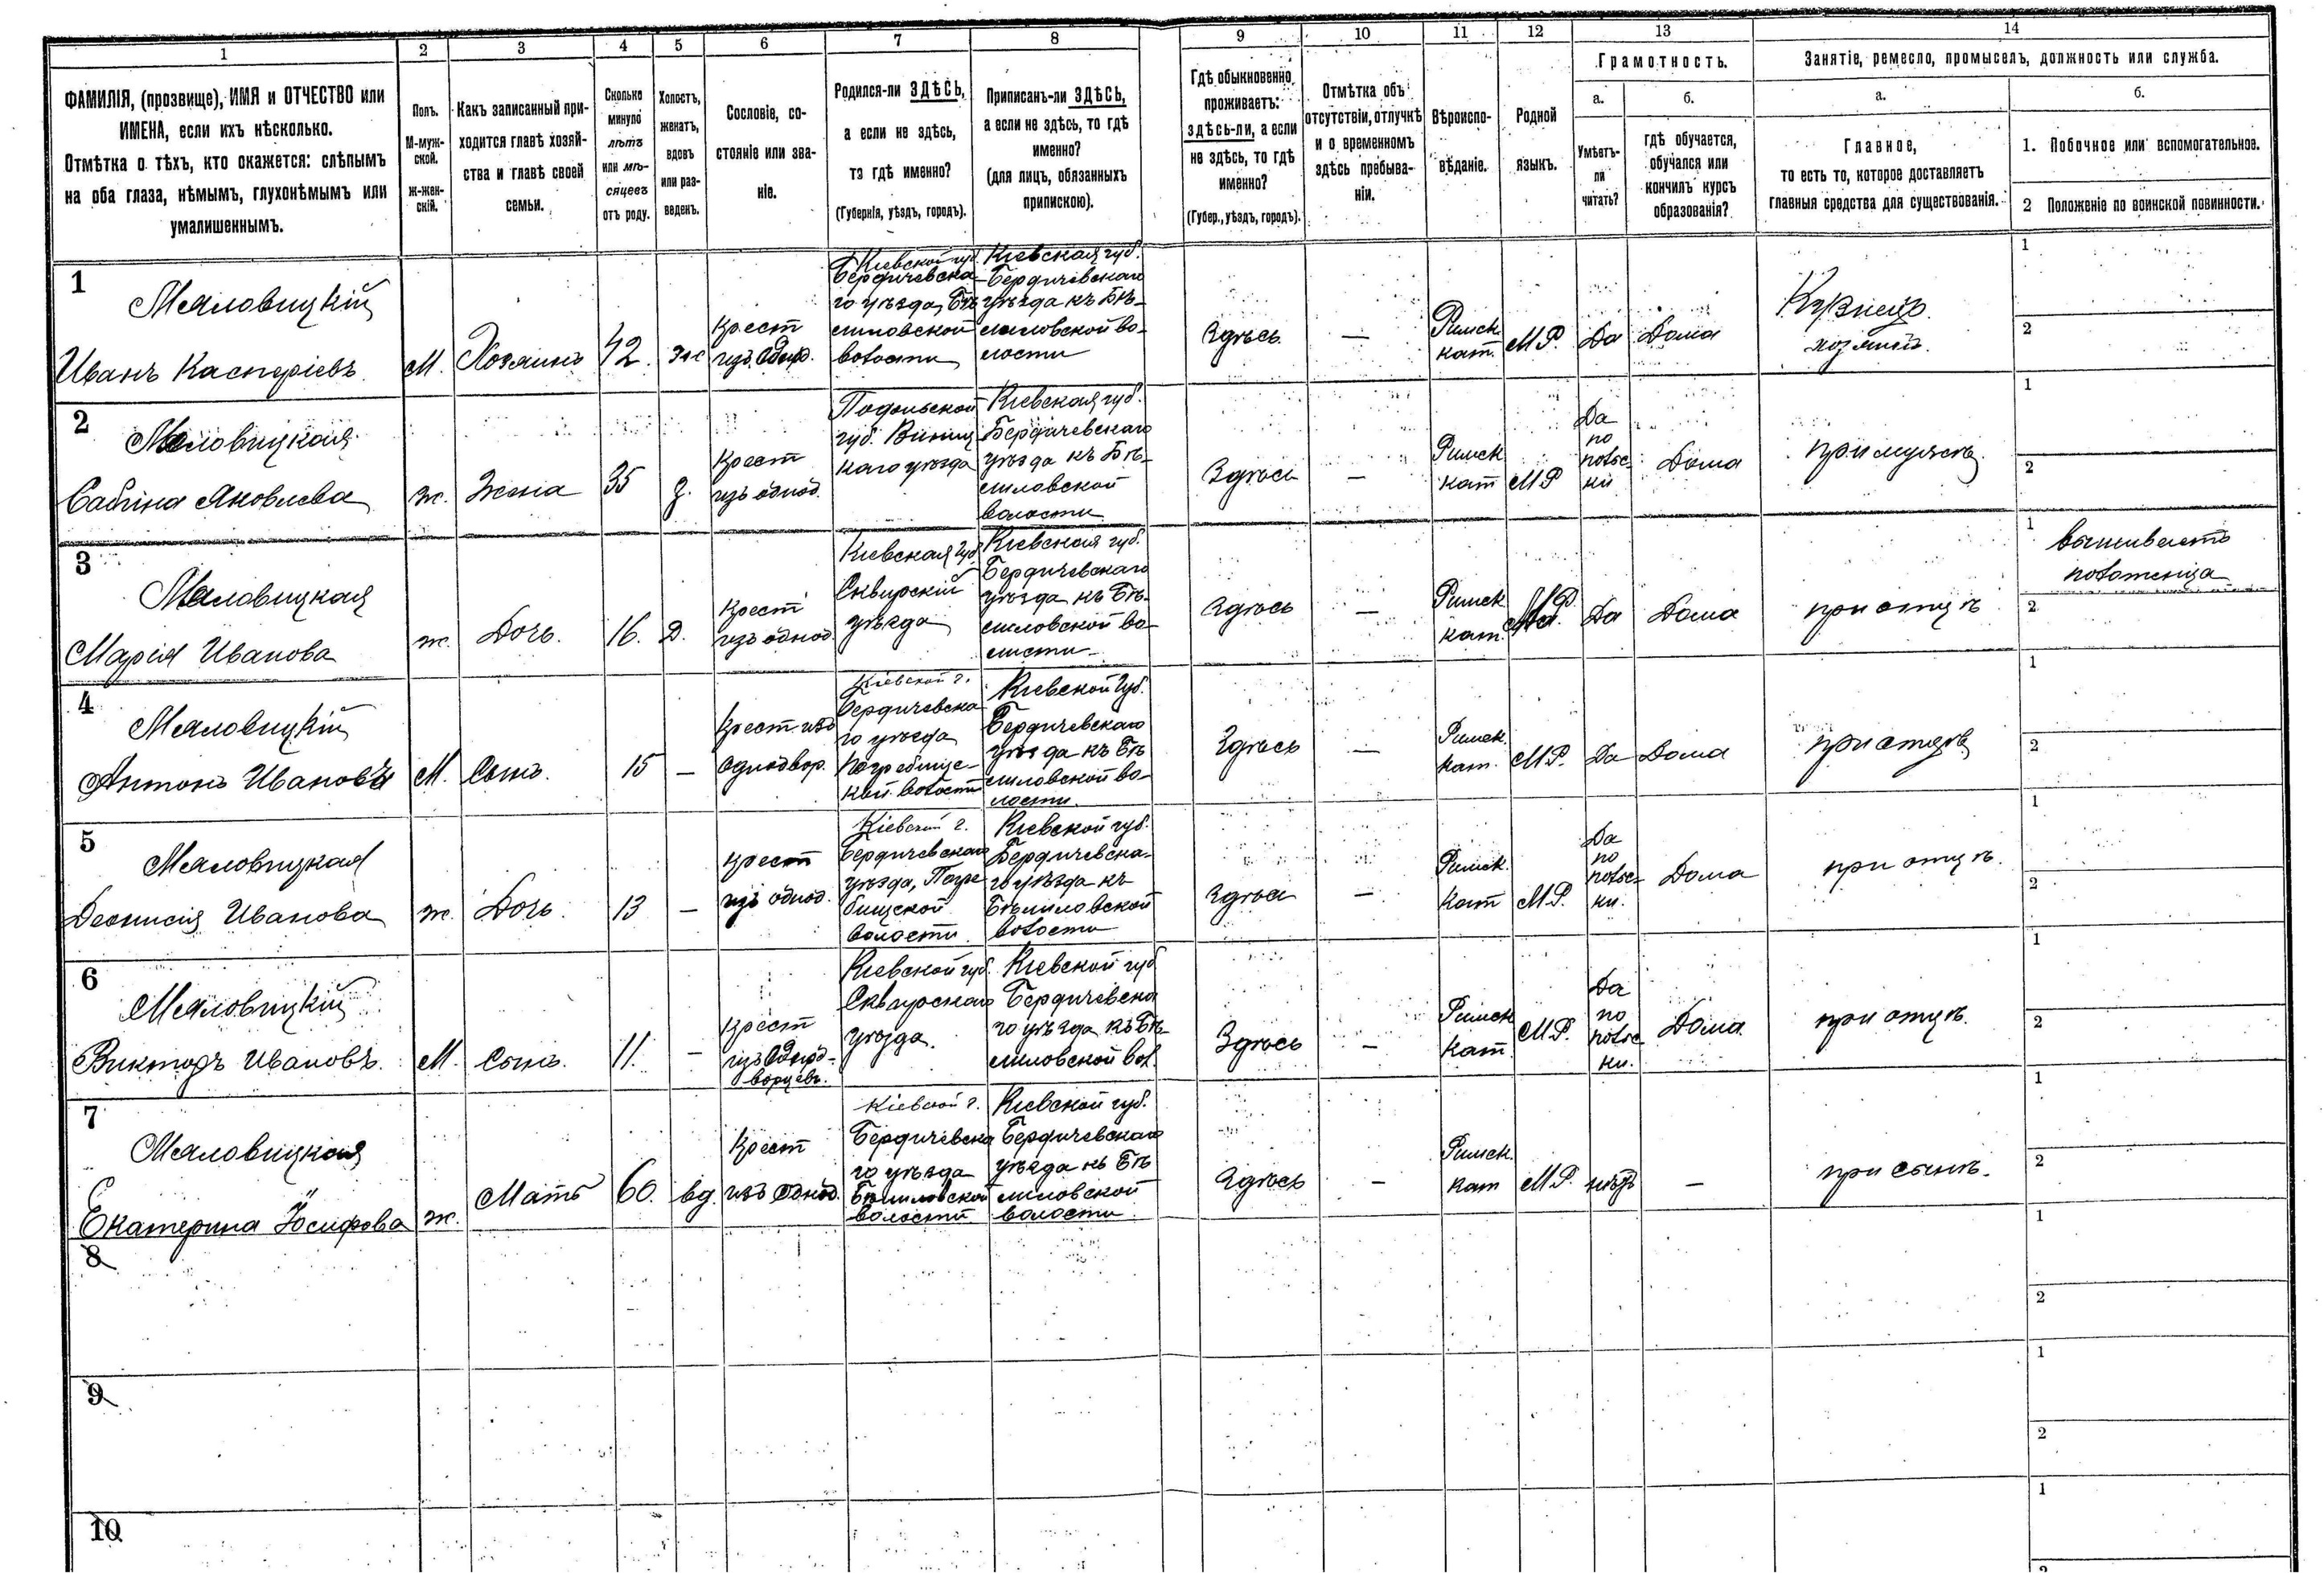 1
2
3
4
5
6
7
8
9
10
11
12
13
14
ФАМИЛІЯ, (прозвище), ИМЯ и ОТЧЕСТВО или
ИМЕНА, если ихъ нѣсколько.
Отмѣтка о тѣхъ, кто окажется: слѣпымъ
на оба глаза, нѣмымъ, глухонѣмымъ или
умалишеннымъ.
Полъ.
М-муж-
ской.
Ж-жен-
скій.
Какъ записанный при-
ходится главѣ хозяй-
ства и главѣ своей
семьи.
Сколько
минуло
лѣтъ
или мѣ-
сяцевъ
отъ роду.
Холостъ,
женатъ,
вдовъ
или раз-
веденъ.
Сословіе, со-
стояніе или зва-
ніе.
Родился-ли ЗДѢСЬ,
а если не здѣсь,
то гдѣ именно?
(Губернія, уѣздъ, городъ).
Приписанъ-ли ЗДѢСЬ,
а если не здѣсь, то гдѣ
именно?
(для лицъ, обязанныхъ
припискою).
Гдѣ обыкновенно
проживаетъ:
здѣсь-ли, а если
не здѣсь, то гдѣ
именно?
(Губер., уѣздъ, городъ).
Отмѣтка объ
отсутствіи, отлучкѣ
и о временномъ
здѣсь пребыва-
ніи.
Вѣроиспо-
вѣданіе.
Родной
языкъ.
Грамотность.
а.
Умѣетъ-
ли
читать?
б.
гдѣ обучается,
обучался или
кончилъ курсъ
образованія?
Занятіе, ремесло, промыселъ, должность или служба.
а.
Главное,
то есть то, которое доставляетъ
главныя средства для существованія.
б.
1. Побочное или вспомогательное.
2 Положеніе по воинской повинности.
1
Мяловицкій
Иванъ Касперіевъ
М.
Хозяинъ
42.
Крест
изъ однод.
Кіевской губ.
Бердичевска-
го уѣзда, Бѣ
лиловской
волости
Кіевская губ.
Бердичевскаго
уѣзда къ Бѣ-
лиловской во-
лости
Здѣсь
—
Римск.
кат.
М.Р.
Да
Дома
Кузнецъ
хозяинъ.
1
2
2
Мяловицкая
Сабина Яковлева
ж.
Жена
35
з.
Крест
изъ однод.
Подольской
губ. Винниц
каго уѣзда
Кіевская губ.
Бердичевскаго
уѣзда къ Бѣ-
лиловской
волости
Здѣсь
—
Римск
кат
М.Р
Да
по
польс-
ки
Дома
при мужѣ
1
2
3
Мяловицкая
Марія Иванова
ж.
Дочь.
16.
Д.
Крест
изъ однод
Кіевская губ
Сквирскій
уѣзда
Кіевская губ.
Бердичевскаго
уѣзда къ Бѣ-
лиловской во-
лости
Здѣсь
—
Римск
кат.
М.Р.
Да
Дома
при отцѣ
1
вышиваетъ
полотенца
2
4
Мяловицкій
Антонъ Ивановъ
М.
Сынъ.
15
—
Крест. изъ
однодвор.
Кіевской г.
Бердичевска
го уѣзда
Погребище-
кой волости
Кіевской губ.
Бердичевскаго
уѣзда къ Бѣ
лиловской во-
лости
Здѣсь
—
Римск.
кат.
М.Р.
Да
Дома
при отцѣ
1
2
5
Мяловицкая
Деонисія Иванова
ж.
Дочь.
13
—
Крест
изъ однод.
Кіевской г.
Бердичевскаго
уѣзда, Погре
бищской
волости
Кіевской губ.
Бердичевска-
го уѣзда къ
Бѣлиловской
волости
Здѣсь
—
Римск.
Кат
М.Р.
Да
по
польс-
ки.
Дома
при отцѣ.
1
2
6
Мяловицкій
Викторъ Ивановъ.
М.
Сынъ.
11.
—
Крест
изъ одно-
дворцевъ.
Кіевской губ.
Сквирскаго
уѣзда.
Кіевской губ
Бердичевска
го уѣзда къ Бѣ-
лиловской вол.
Здѣсь
—
Римск
Кат.
М.Р.
Да
по
польс
ки.
Дома
при отцѣ.
1
2
7
Мяловицкая
Екатерина Іосифова
ж.
Мать
60.
вд.
Крест
изъ однод.
Кіевской г.
Бердичевска
го уѣзда
Бѣлиловской
волости
Кіевской губ.
Бердичевскаго
уѣзда къ Бѣ
лиловской
волости
Здѣсь
—
Римск.
кат
М.Р.
нѣтъ
—
при сынѣ.
1
2
8
1
2
9
1
2
10
1